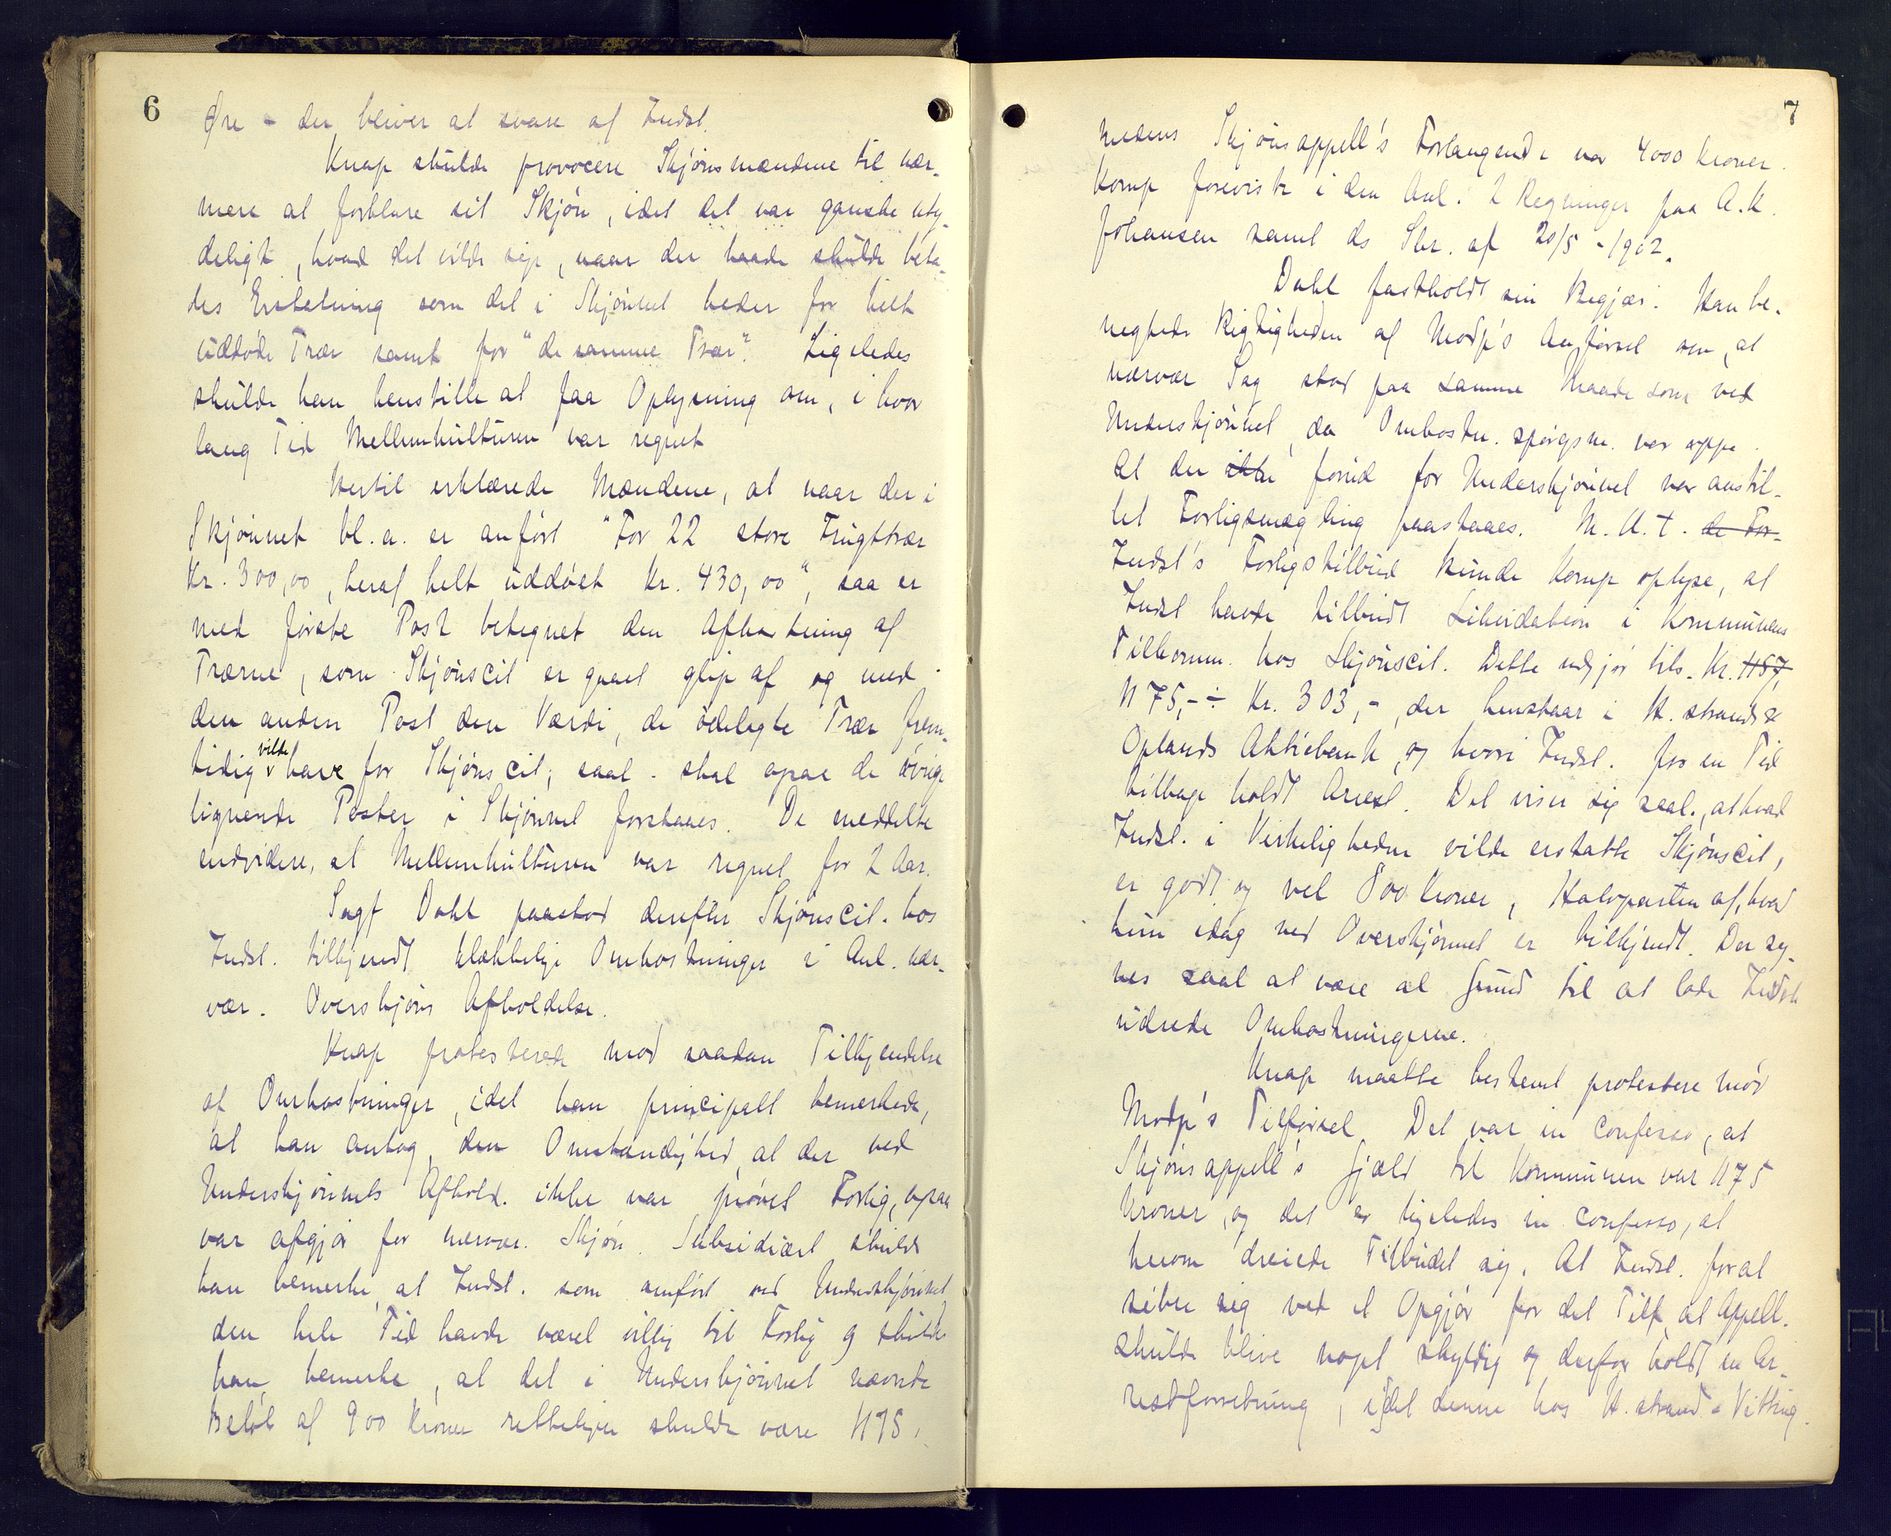 6
Øre - der bliver at svare af Indst.
Knap skulde provocere Skjønsmændene til nær-
mere at forklare sit Skjøn, idet det var ganske uty-
deligt, hvad det vilde sige, naar der baade skulde beta-
les Erstatning som det i Skjønnet heder for helt
uddøde Trær samt for "de samme Trær". Ligeledes
skulde han henstille at faa Oplysning om, i hvor
lang Tid Mellemkulturen var regnet
Hertil erklærede Mændene, at naar der i
Skjønnet bl. a. er anført "For 22 store Frugttrær
Kr. 300,00, heraf helt uddøet Kr. 430,00", saa er
med første Post betegnet den Afkastning af
Trærne, som Skjønscit er gaaet glip af og med
den anden Post den Værdi, de ødelagte Trær frem-
tidig vilde have for Skjønscit; saal. skal ogsaa de øvrige
lignende Poster i Skjønnet forstaaes. De meddelte
endvidere, at Mellemkulturen var regnet for 2 Aar.
Sagf Dahl paastod derefter Skjønscit. hos
Indst. tilkjendt skikkelige Omkostninger i Anl. nær-
vær. Overskjøns Afholdelse.
Knap protesterede mod saadan Tilkjendelse
af Omkostninger, idet han principalt bemerkede,
at han antog, den Omstændighed, at der ved
Underskjønnets Afhold. ikke var prøvet Forlig, ogsaa
var afgjør for nærvær. Skjøn. Subsidiært skulde
han bemerke, at Indst. som anført ved Underskjønnet
den hele Tid havde været villig til Forlig og skulde
han bemerke, at det i Underskjønnet nævnte
Beløb af 900 Kroner retteligen skulde være 1175,
7
medens Skjønsappell's Forlangende var 4000 Kroner.
Komp foreviste i den Anl. 2 Regninger paa A. K.
Johansen samt ds Skr. af 20/5 - 1902.
Dahl fastholdt sin Begjær. Han be-
negtede Rigtigheden af Modp's Anførsel om, at
nærvær Sag stod paa samme Maade som ved
Underskjønnet, da Omkostn. spørgsm. var oppe.
At der ikke forud for Underskjønnet var anstil-
let Forligsmægling paastaaes. M. H. t. de For-
Indst's Forligstilbud kunde Komp oplyse, at
Indst havde tilbudt Likvidation i Kommunens
Tilkomm. hos Skjønscit. Dette udgjør tils. Kr. 1157,
1175,- ÷ Kr. 303,-, der henstaar i H. strands &
Oplands Aktiebank, og hvori Indst. for en Tid
tilbage holdt Arrest. Det viser sig saal., at hvad
Indst. i Virkeligheden vilde erstatte Skjønscit,
er godt og vel 800 Kroner, Halvparten af, hvad
hun idag ved Overskjønnet er tilkjendt. Der sy-
nes saal at være al Grund til at lade Indst
udrede Omkostningerne.
Knap maatte bestemt protestere mod
Modp's Tilførsel. Det var in confesso, at
Skjønsappell's Gjæld til Kommunen var 1175
Kroner, og det er ligeledes in confesso, at
herom dreiede Tilbudet sig. At Indst. for at
sikre sig ved et Opgjør for det Tilf at Appell.
skulde blive noget skyldig og derfor holdt en Ar-
restforretning, idet denne hos H. strand - Vitting-